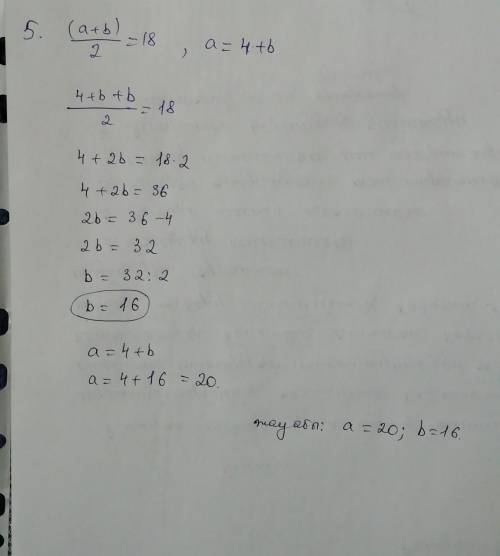 5. (a+b)/2 = 18 , a = 4+b
(4+b+b)/2 = 18
4 + 2b = 18·2
4 + 2b = 36
2b = 36-4
2b = 32
b = 32:2
b = 16
a = 4+b
a = 4+16 = 20.
жауабы: a = 20; b = 16.